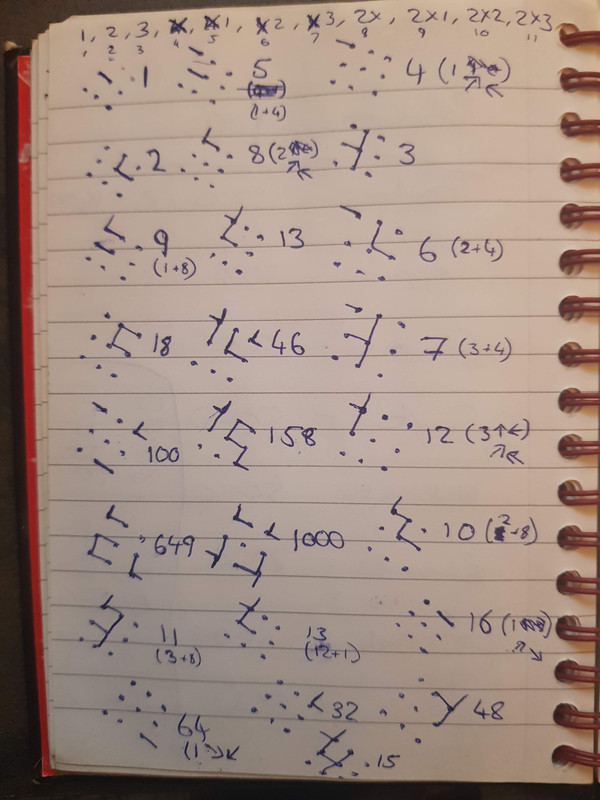 1, 2, 3, 1, 2, 3, 2x, 2x1, 2x2, 2x3
1 2 3 4 5 6 7 8 9 10 11
1 5 4 (1
(1+4)
2 8 (2 3
9 13 6 (2+4)
(1+8)
18 46 7 (3+4)
100 158 12 (3↑←)
↗↖
649 1000 10 (2+8)
11 13 16 (1
(3+8) (12+1)
64 32 48
(1↘↙
15